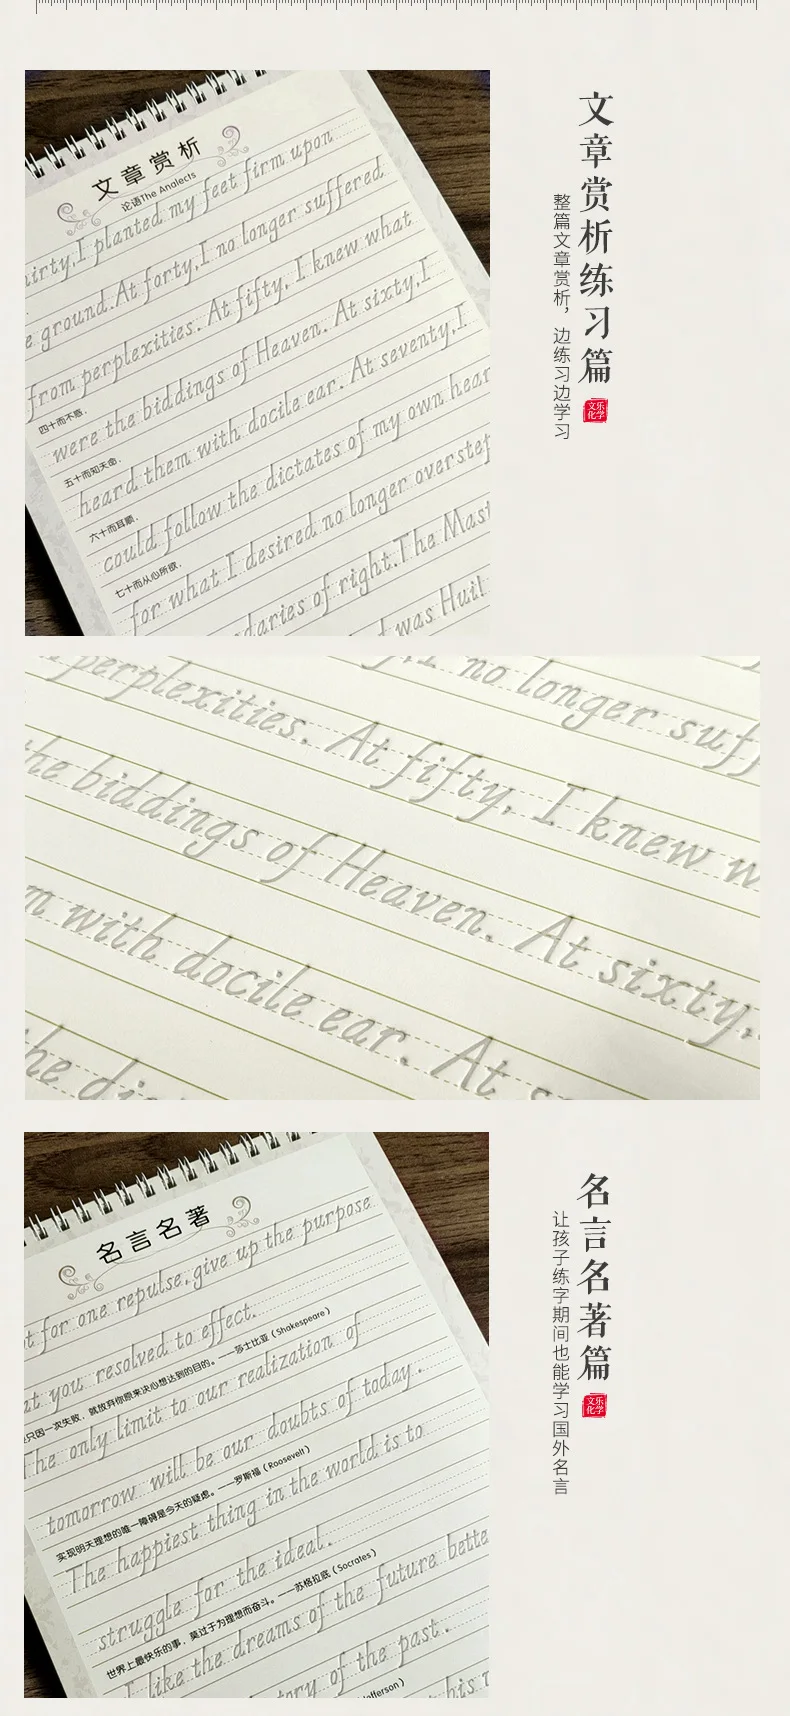 文章赏析
论语The Analects
hirty,I planted my feet firm upon
e ground.At forty,I no longer suffered
from perplexities. At fifty, I knew what
四十而不惑，
were the biddings of Heaven. At sixty,I
五十而知天命，
heard them with docile ear. At seventy,I
六十而耳顺，
could follow the dictates of my own hear
七十而从心所欲，
for what I desired no longer overstep
daries of right.The Mast
was Hui!
文章赏析练习篇
整篇文章赏析，边练习边学习
文乐化学
no longer suff
perplexities. At fifty, I knew w
the biddings of Heaven. At sixty,
m with docile ear. At s
the di
名言名著
ot for one repulse,give up the purpose
at you resolved to effect.
只因一次失败，就放弃你原来决心想达到的目的。——莎士比亚（Shakespeare）
The only limit to our realization of
tomorrow will be our doubts of today.
实现明天理想的唯一障碍是今天的疑虑。——罗斯福（Roosevelt）
The happiest thing in the world is to
struggle for the ideal.
世界上最快乐的事，莫过于为理想而奋斗。——苏格拉底（Socrates）
I like the dreams of the future bette
tory of the past.
fferson）
his
名言名著篇
让孩子练字期间也能学习国外名言
文乐化学